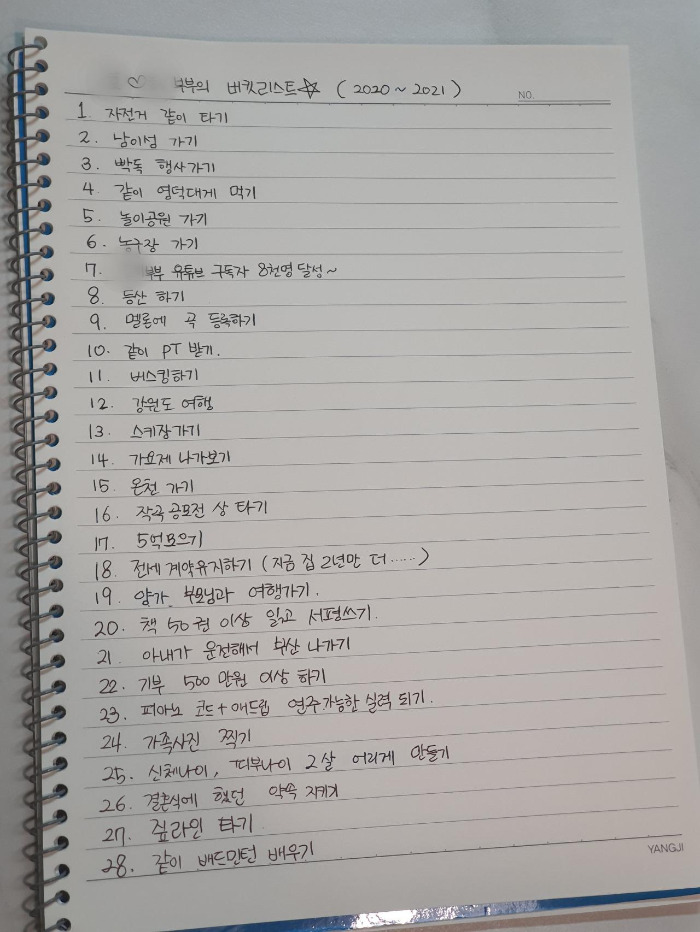 ♡ 부부의 버킷리스트☆ (2020~2021)
NO.
1. 자전거 같이 타기
2. 남이섬 가기
3. 빡독 행사가기
4. 같이 영덕대게 먹기
5. 놀이공원 가기
6. 농구장 가기
7. 부부 유튜브 구독자 8천명 달성~
8. 등산 하기
9. 멜론에 곡 등록하기
10. 같이 PT 받기.
11. 버스킹하기
12. 강원도 여행
13. 스키장가기
14. 가요제 나가보기
15. 온천 가기
16. 작곡 공모전 상 타기
17. 5억모으기
18. 전세계약유지하기 (지금 집 2년만 더......)
19. 양가 부모님과 여행가기.
20. 책 50권 이상 읽고 서평쓰기.
21. 아내가 운전해서 부산 나가기
22. 기부 500만원 이상 하기
23. 피아노 코드+애드립 연주가능한 실력 되기.
24. 가족사진 찍기
25. 신체나이, 피부나이 2살 어리게 만들기
26. 결혼식에 했던 약속 지키기
27. 짚라인 타기
28. 같이 배드민턴 배우기
YANGJI